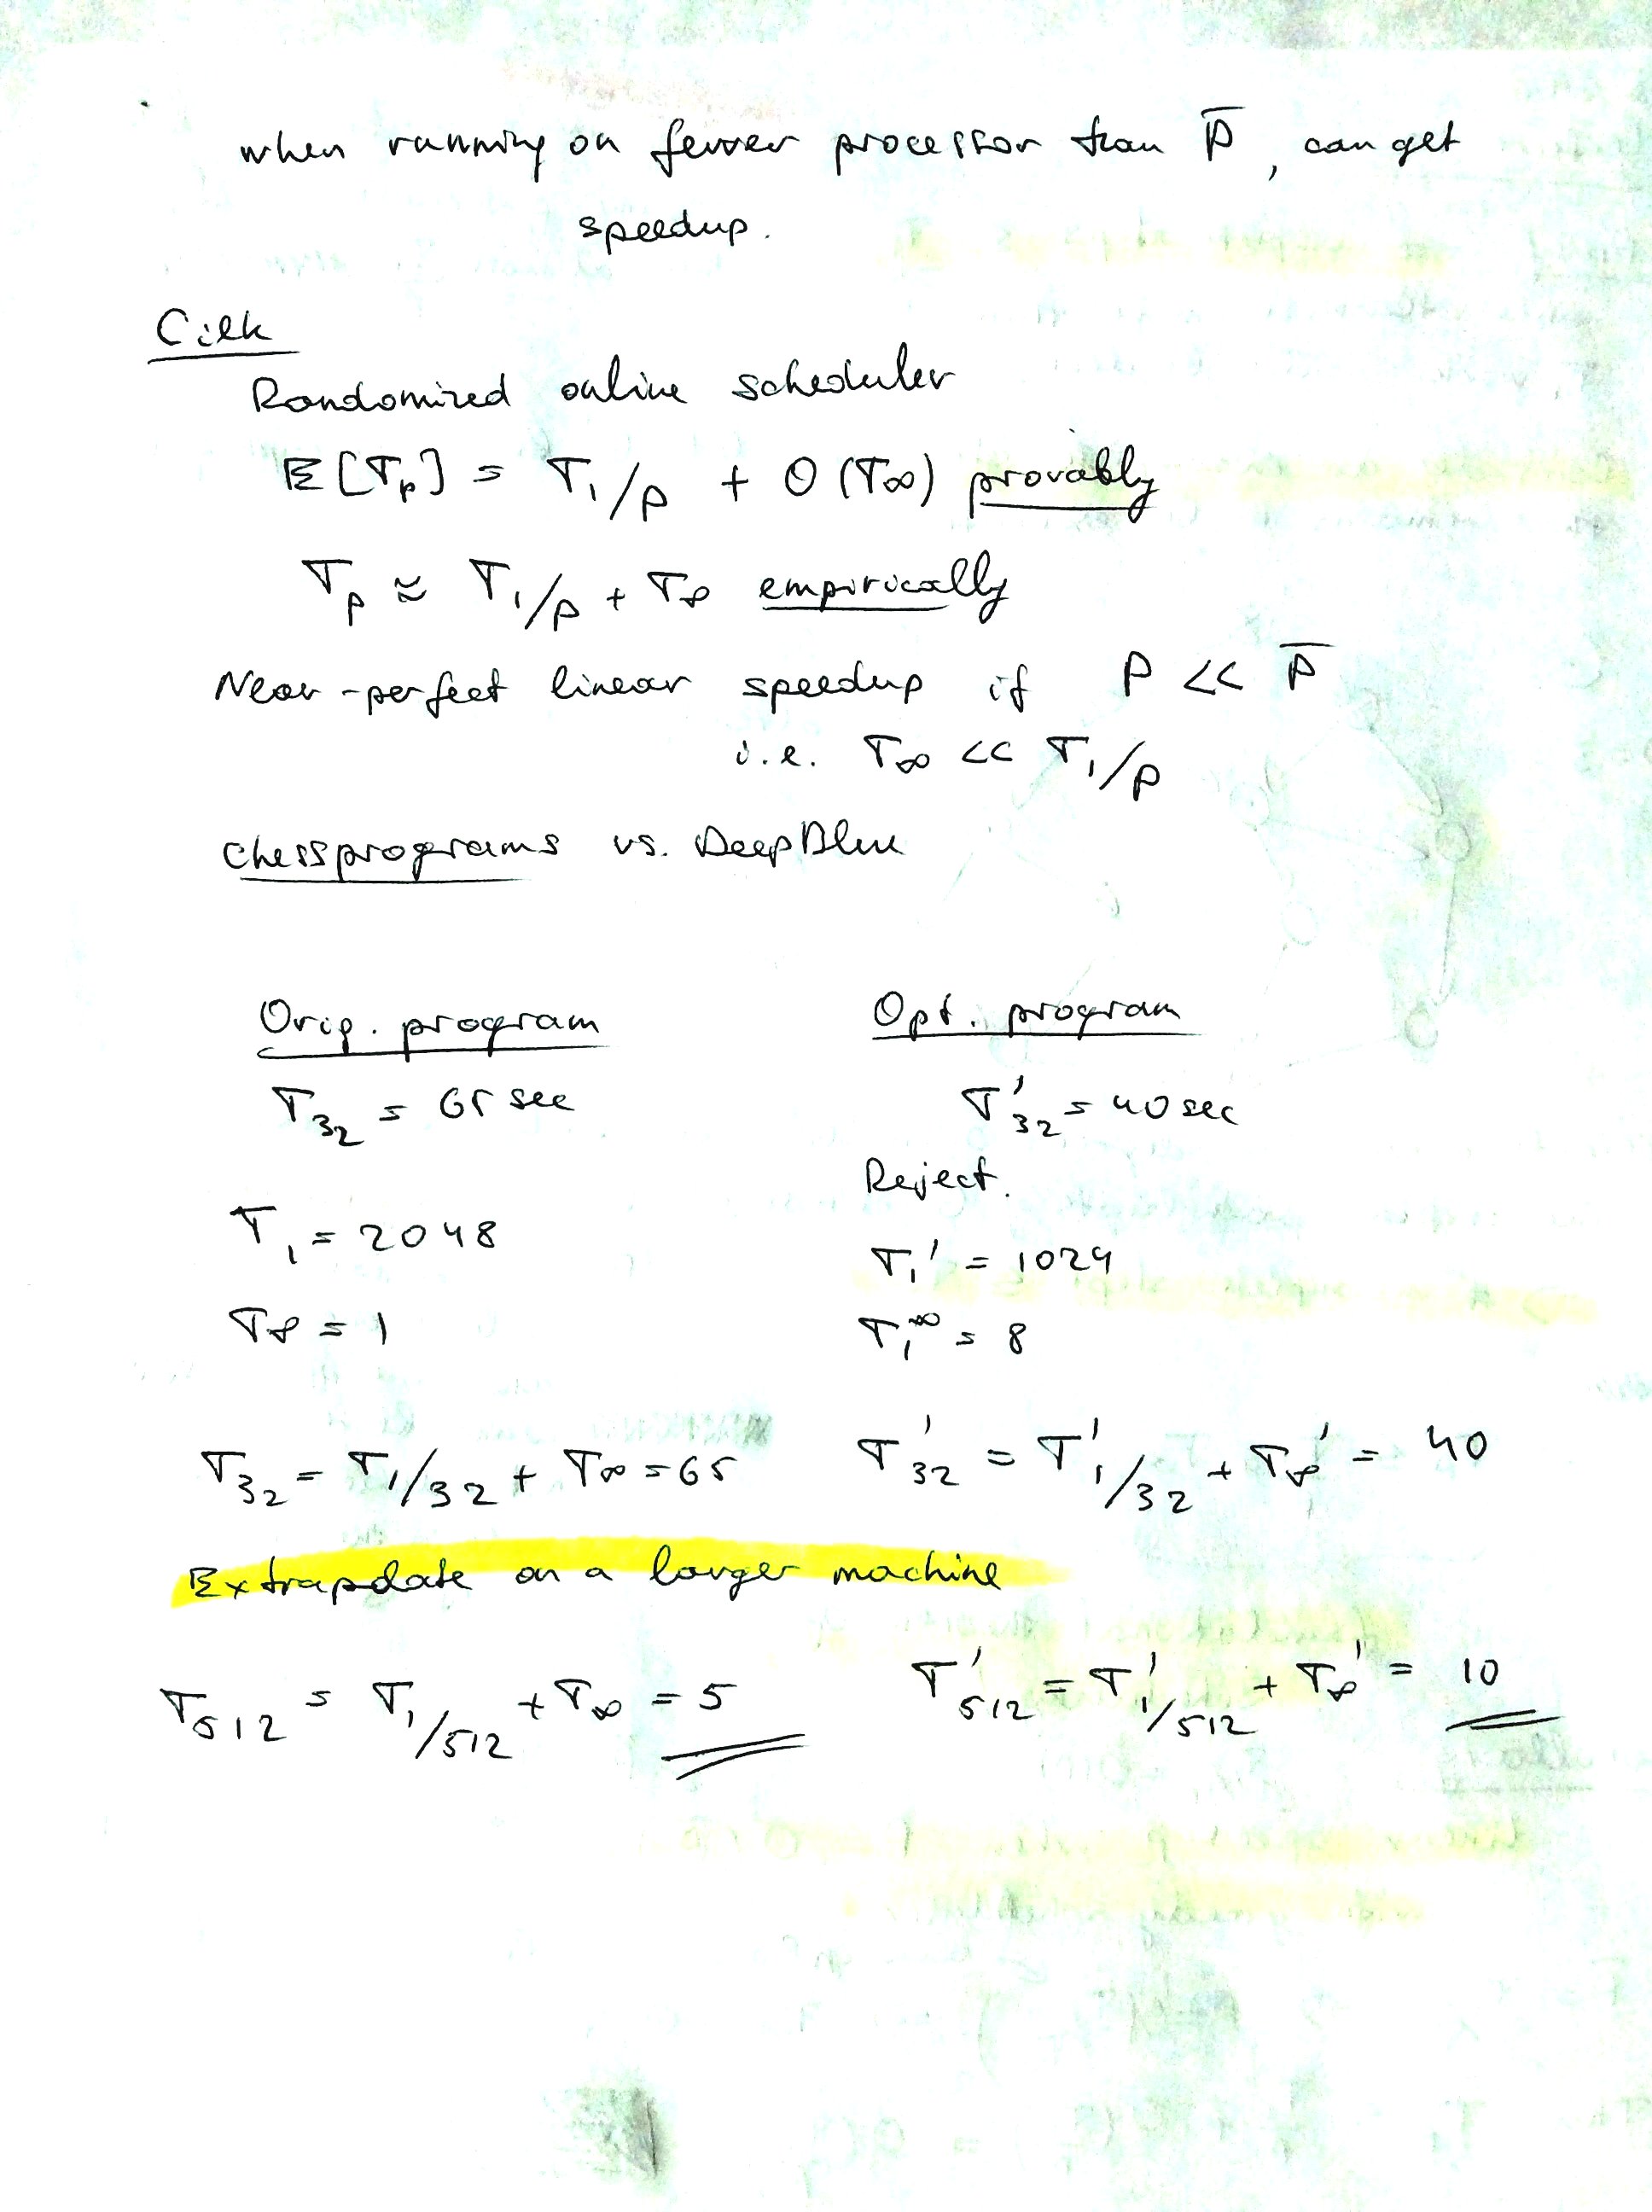 when running on fewer processor than P̅, can get
speedup.
Cilk
Randomized online scheduler
E[Tp] = T₁/P + O(T∞) provably
Tp ≈ T₁/P + T∞ empirically
Near-perfect linear speedup if P << P̅
i.e. T∞ << T₁/P
Chessprograms vs. DeepBlue
Orig. program
T₃₂ = 65 sec
T₁ = 2048
T∞ = 1
T₃₂ = T₁/32 + T∞ = 65
Opt. program
T'₃₂ = 40 sec
Reject.
T₁' = 1024
T₁∞ = 8
T'₃₂ = T'₁/32 + T∞' = 40
Extrapolate on a larger machine
T₅₁₂ = T₁/512 + T∞ = 5
T'₅₁₂ = T'₁/512 + T∞' = 10